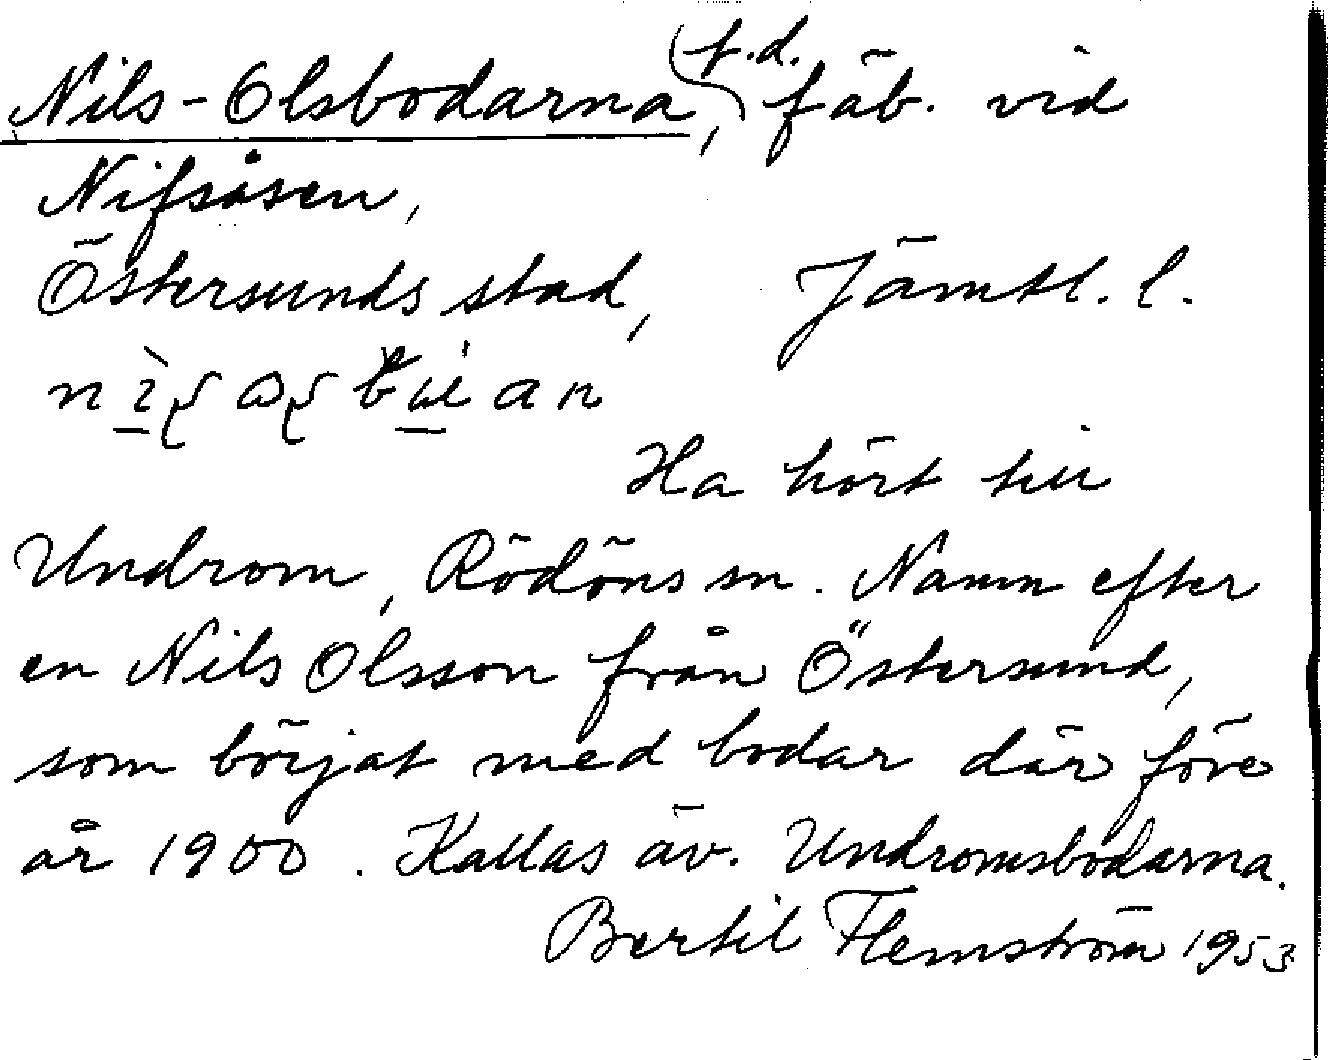 Nils-Olsbodarna, f.d. fäb. vid
Nifsåsen,
Östersunds stad, Jämtl. l.
Ha hört till
Undrom, Rödöns sn. Namn efter
en Nils Olsson från Östersund,
som börjat med bodar där före
år 1900. Kallas äv. Undromsbodarna.
Bertil Flemström 1953